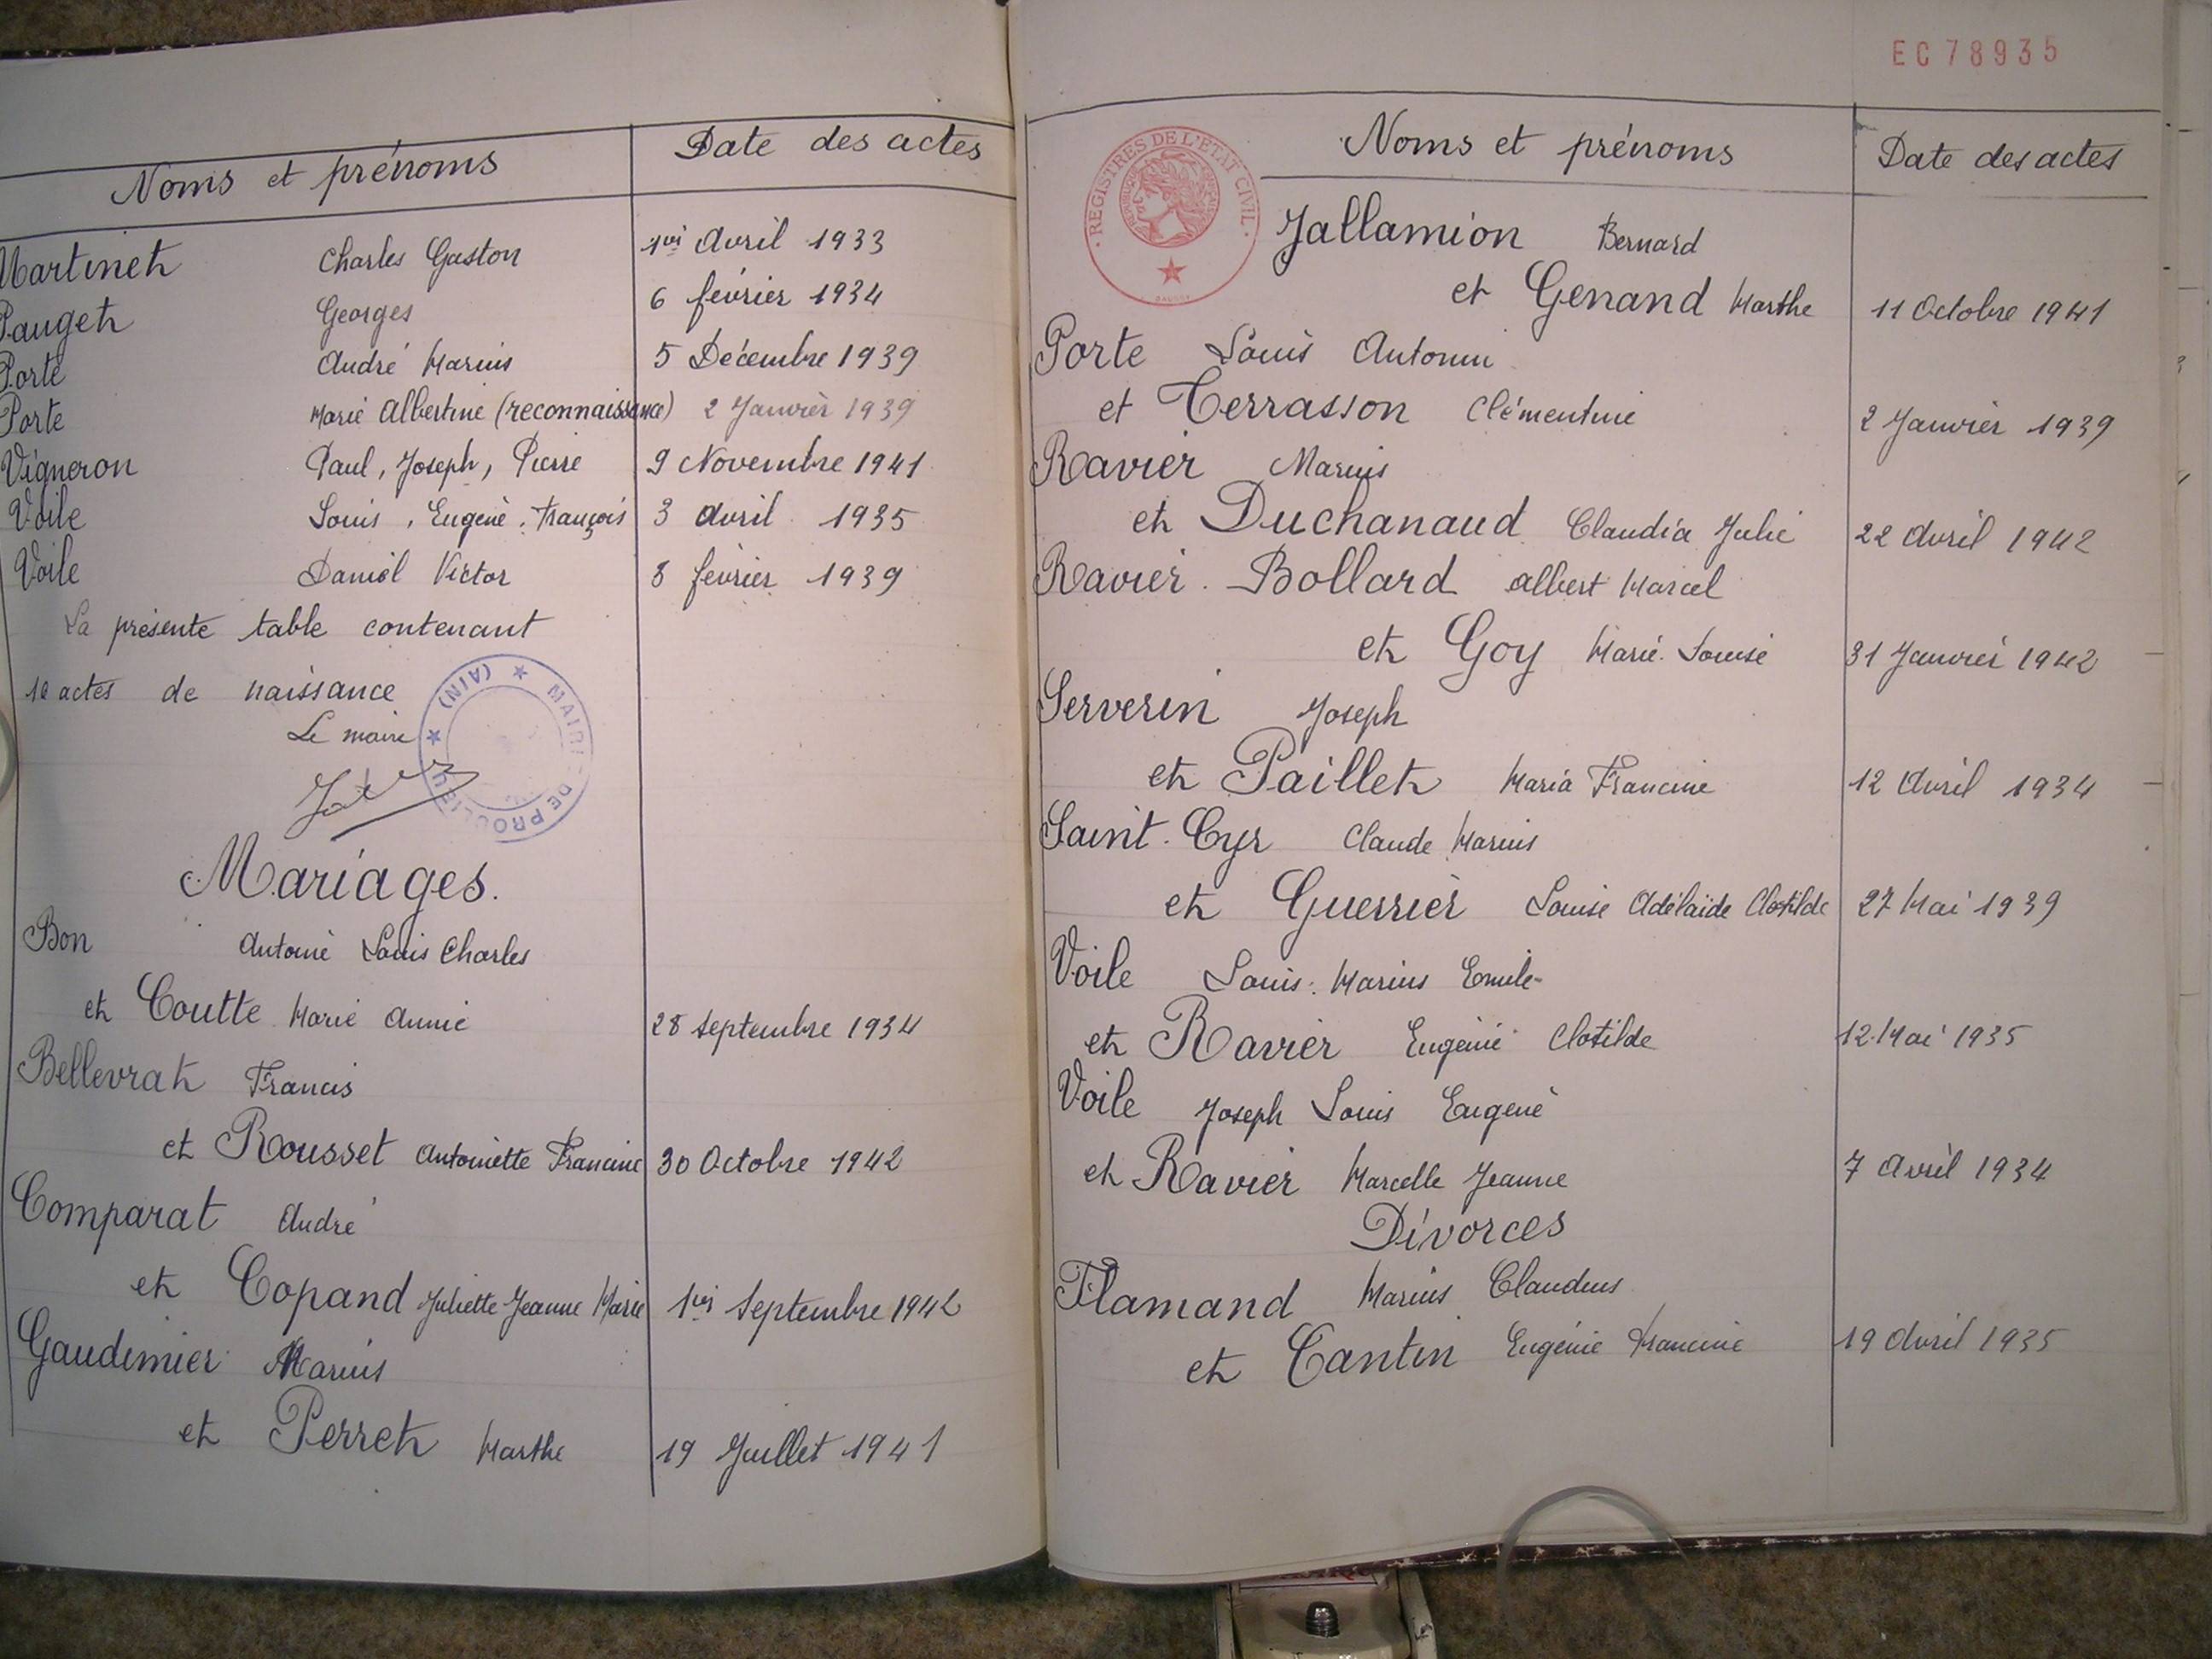 Noms et prénoms Date des actes
Martinet Charles Gaston 1er Avril 1933
Pauget Georges 6 février 1934
Porte André Marius 5 Décembre 1939
Porte Marie Albertine (reconnaissance) 2 Janvier 1939
Vigneron Paul, Joseph, Pierre 9 Novembre 1941
Voile Louis, Eugène, François 3 Avril 1935
Voile Daniel Victor 8 février 1939
La présente table contenant
10 actes de naissance
Le maire
MAIRIE DE PROULIEU (AIN)
Mariages.
Bon Antoine Louis Charles
et Coutte Marie Annie 28 Septembre 1934
Bellevrat Francis
et Rousset Antoinette Francine 30 Octobre 1942
Comparat André
et Copand Juliette Jeanne Marie 1er Septembre 1942
Gaudinier Marius
et Perret Marthe 19 Juillet 1941
EC78935
REGISTRES DE L'ETAT CIVIL
Noms et prénoms Date des actes
Jallamion Bernard
et Genand Marthe 11 Octobre 1941
Porte Louis Antonin
et Terrasson Clémentine 2 Janvier 1939
Ravier Marius
et Duchanaud Claudia Julie 22 Avril 1942
Ravier. Bollard Albert Marcel
et Goy Marie-Louise 31 Janvier 1942
Serverin Joseph
et Paillet Maria Francine 12 Avril 1934
Saint-Cyr Claude Marius
et Guerrier Louise Adélaïde Clotilde 27 Mai 1939
Voile Louis Marius Emile
et Ravier Eugénie Clotilde 12 Mai 1935
Voile Joseph Louis Eugène
et Ravier Marcelle Jeanne 7 Avril 1934
Divorces
Flamand Marius Claudius
et Cantin Eugénie Francine 19 Avril 1935